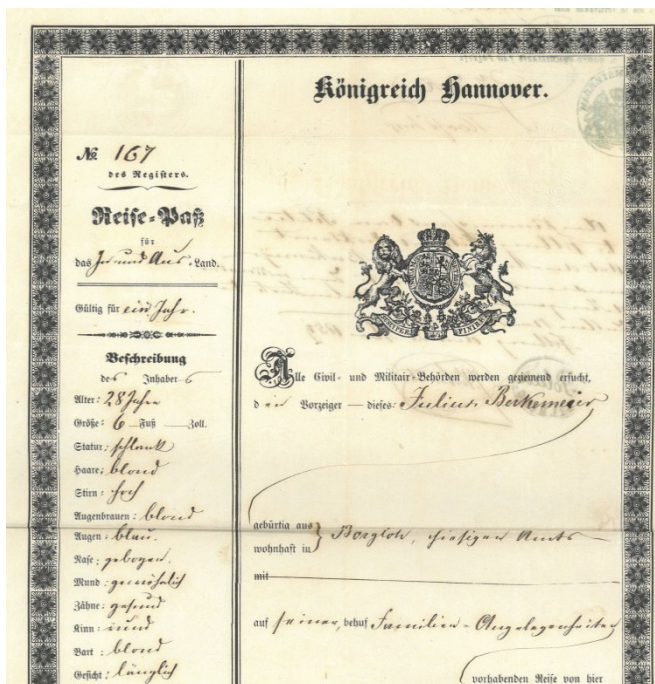 Königreich Hannover.
№ 167
des Registers.
Reise=Paß
für
das In- und Aus-Land.
Gültig für ein Jahr.
Beschreibung
des Inhabers
Alter: 28 Jahre
Größe: 6 Fuß — Zoll.
Statur: schlank
Haare: blond
Stirn: hoch
Augenbrauen: blond
Augen: blau.
Nase: gebogen.
Mund: gewöhnlich
Zähne: gesund
Kinn: rund
Bart: blond
Gesicht: länglich
Alle Civil- und Militair-Behörden werden geziemend ersucht,
den Vorzeiger — dieses: Julius Berkemeier
gebürtig aus
wohnhaft in } Borgloh, hiesigen Amts
mit
auf seiner, behuf Familien-Angelegenheiten
vorhabenden Reise von hier